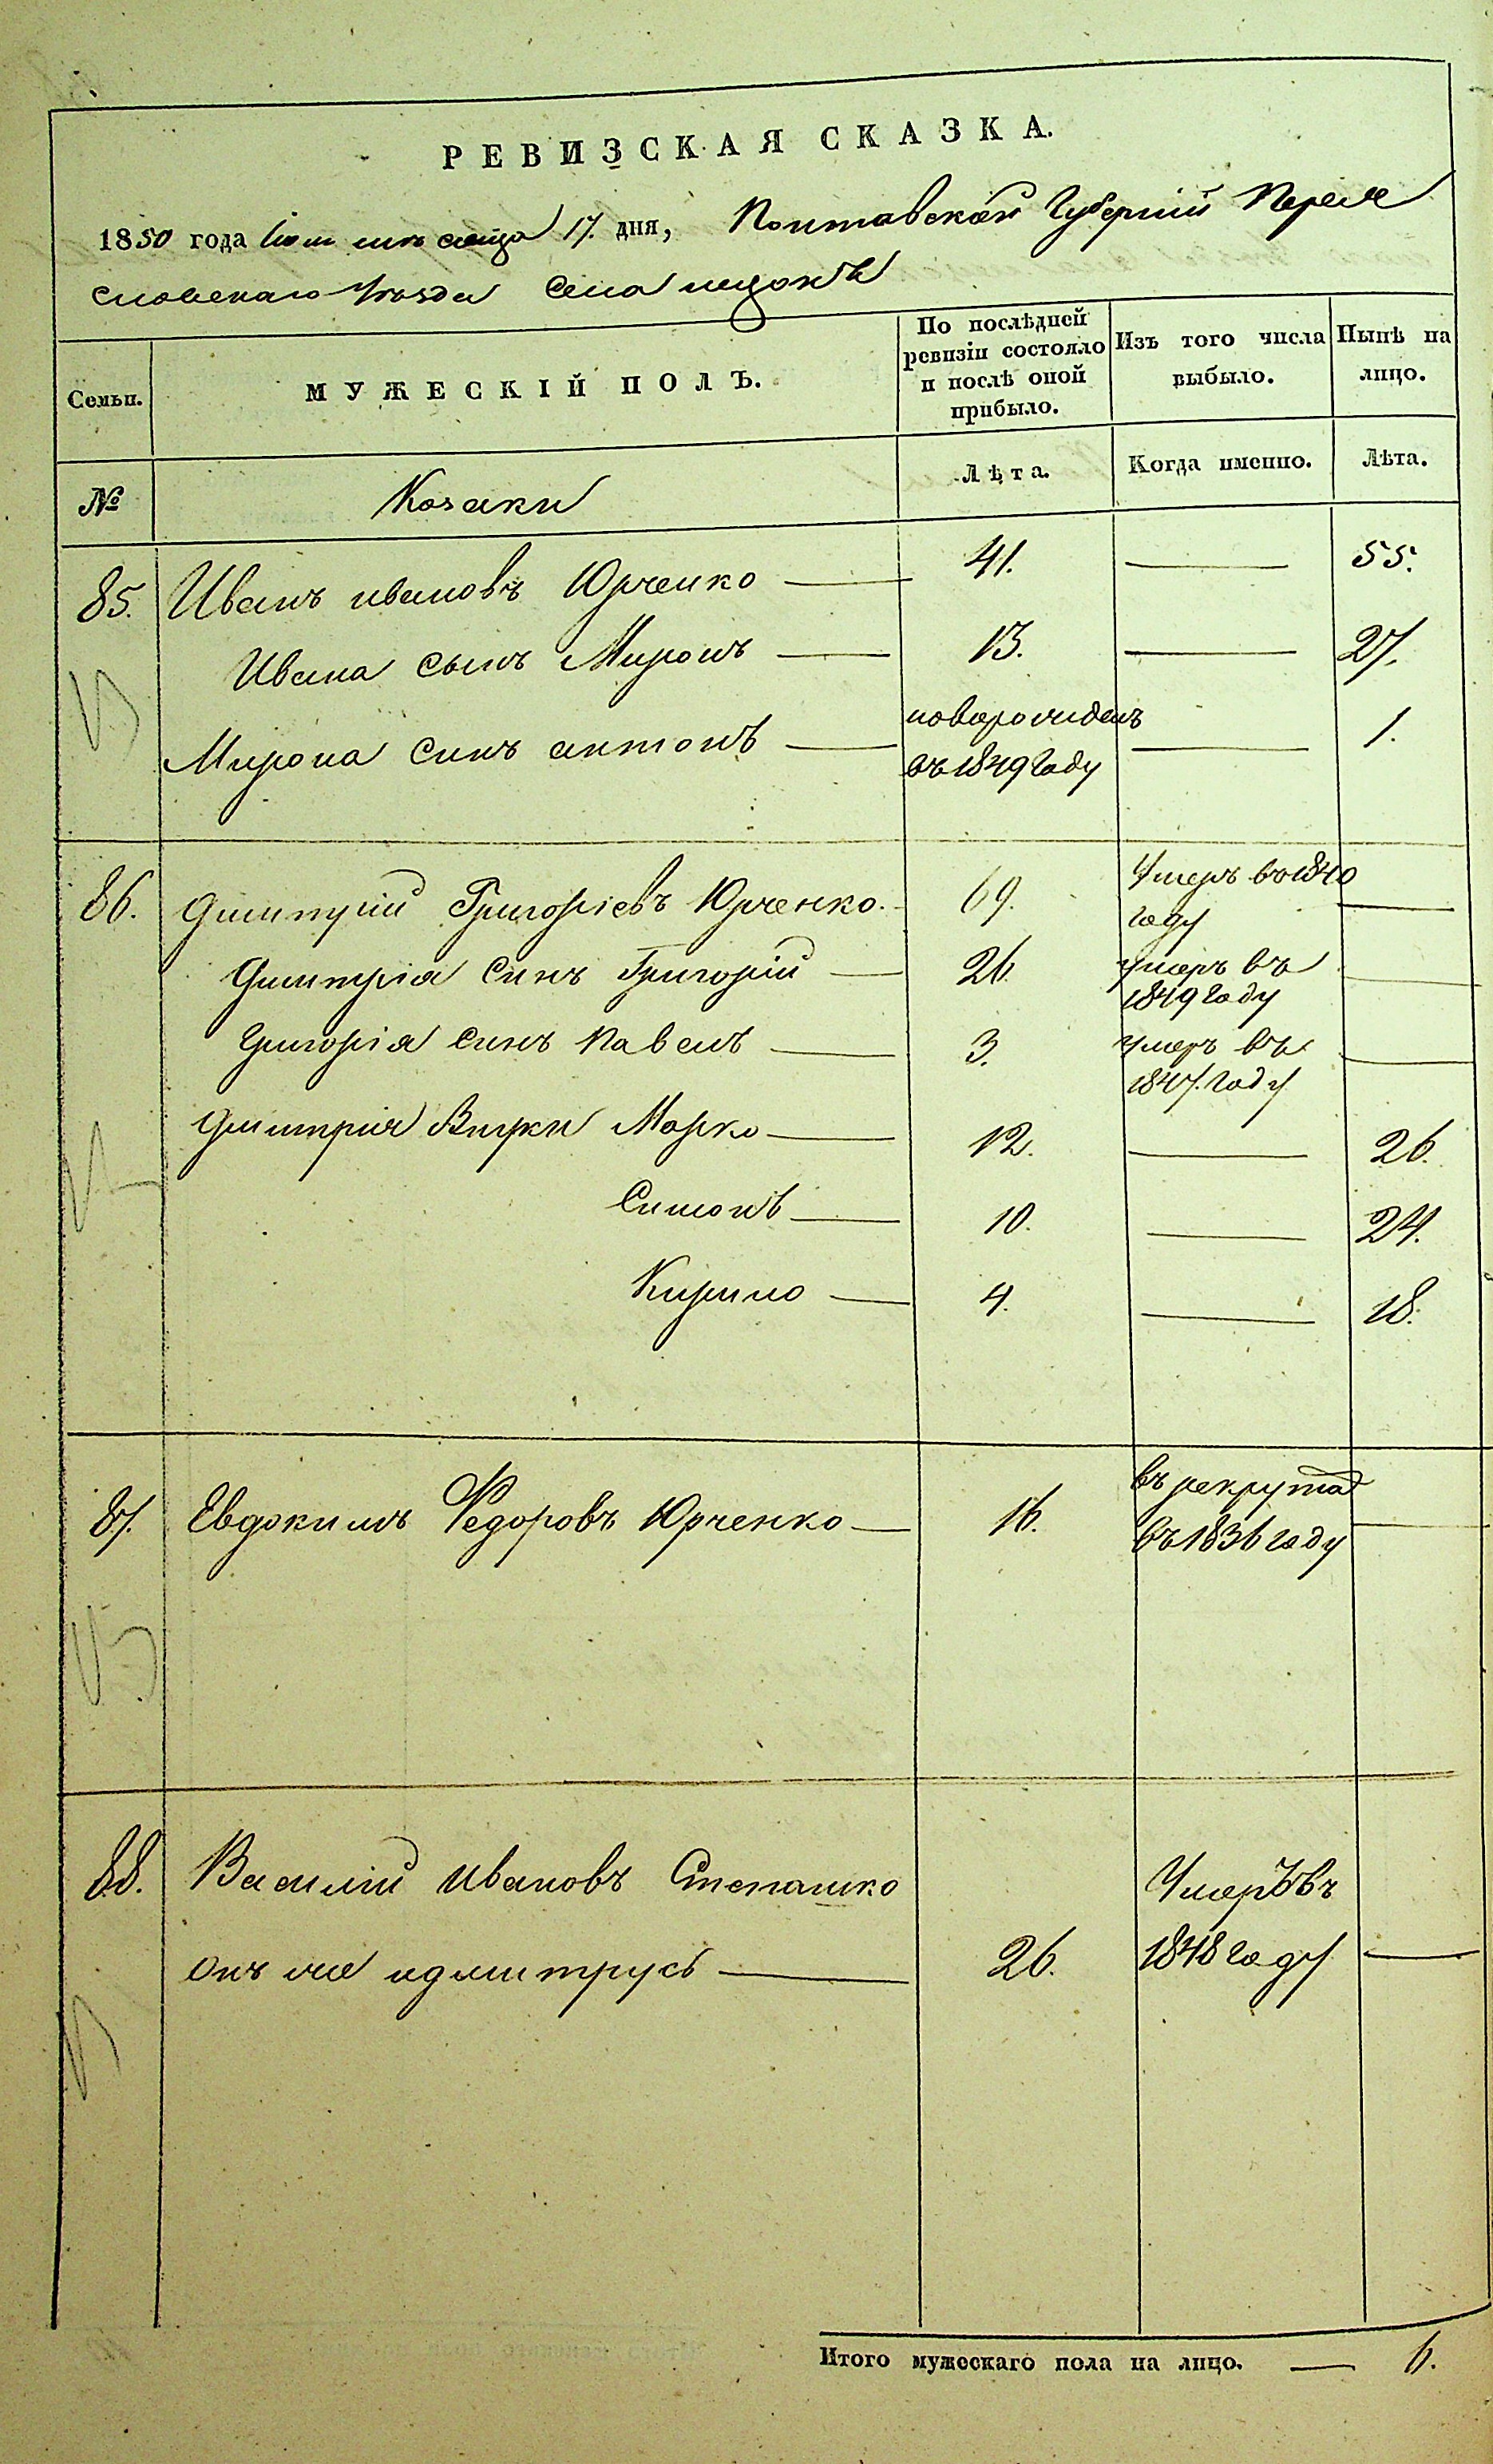 РЕВИЗСКАЯ СКАЗКА.
1850 года мѣсяца 17. дня, Полтавской Губерніи Перея
славскаго Уѣзда Села
Семьи.
МУЖЕСКІЙ ПОЛЪ.
По послѣдней ревизіи состояло и послѣ оной прибыло.
Изъ того числа выбыло.
Нынѣ на лицо.
№
Козаки
Лѣта.
Когда именно.
Лѣта.
85. Иванъ ивановъ Юрченко — 41. — 55.
Ивана сынъ Миронъ — 13. — 27.
Мирона синъ антонъ — новорожденъ въ 1849 году — 1.
86. Дмитрій Григоріевъ Юрченко. 69. Умеръ въ 1840 году —
Дмитрія синъ Григорій — 26. умеръ въ 1849 году —
Григорія синъ павелъ — 3. умеръ въ 1847. году —
Дмитрія Внуки Марко — 12. — 26.
Симонъ — 10. — 24.
Кирило — 4. — 18.
87. Евдокимъ Федоровъ Юрченко — 16. въ рекрута въ 1836 году —
88. Василій ивановъ Степашко
онъ же 26. Умеръ въ 1848 году —
Итого мужескаго пола на лицо. — 6.